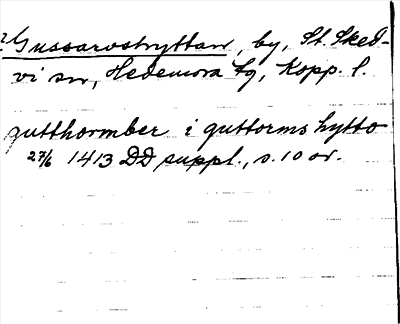 ? Gussarvshyttan, by, St. Sked-
vi sn, Hedemora tg, Kopp. l.
gutthormber i guttorms hytto
27/6 1413 DD suppl., s. 10 or.